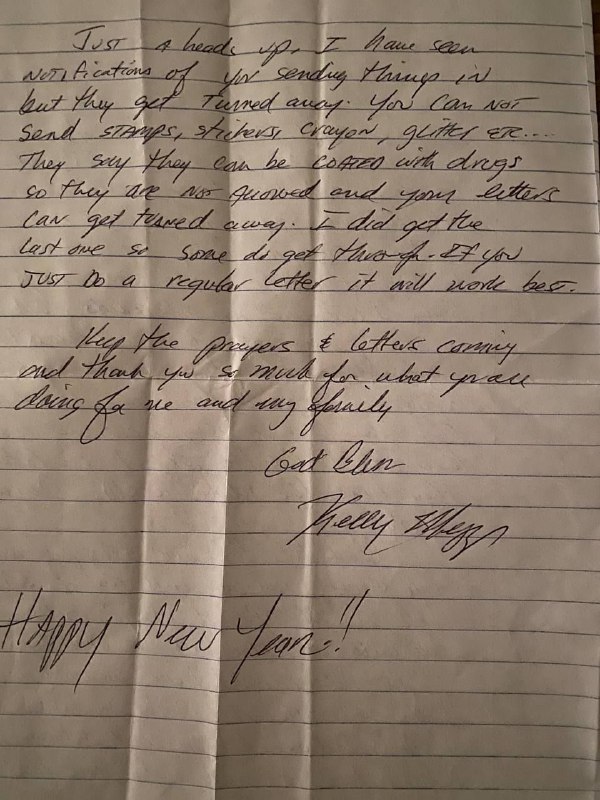 Just a heads up, I have seen
notifications of you sending things in
but they get turned away. You can not
send stamps, stickers, crayon, glitter etc....
They say they can be coated with drugs
so they are not allowed and your letters
can get turned away. I did get the
last one so some do get through. If you
just do a regular letter it will work best.
Keep the prayers & letters coming
and thank you so much for what you are
doing for me and my family
God Bless
Kelly
Happy New Year!!